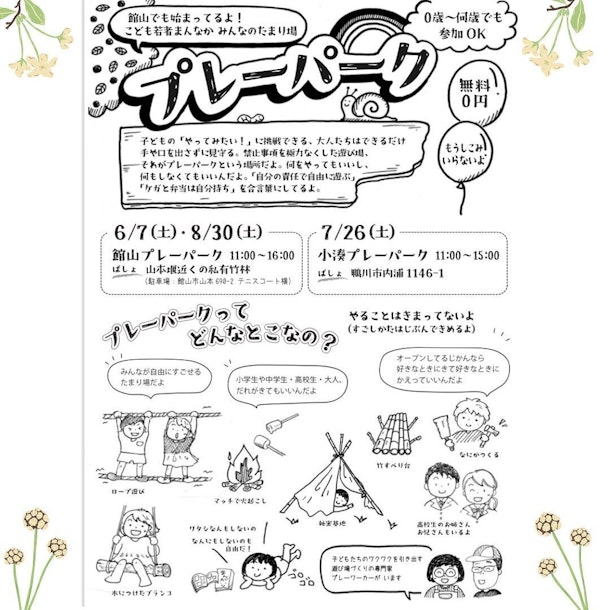 館山でも始まってるよ！
こども若者まんなか みんなのたまり場
0歳～何歳でも
参加OK
プレーパーク
無料
0円
もうしこみ
いらないよ
子どもの「やってみたい！」に挑戦できる、大人たちはできるだけ
手や口を出さずに見守る。禁止事項を極力なくした遊び場、
それがプレーパークという場所だよ。何をやってもいいし、
何もしなくてもいいんだよ。「自分の責任で自由に遊ぶ」
「ケガと弁当は自分持ち」を合言葉にしてるよ。
6/7(土)・8/30(土)
館山プレーパーク 11:00～16:00
ばしょ 山本堰近くの私有竹林
(駐車場：館山市山本690-2 テニスコート横)
7/26(土)
小湊プレーパーク 11:00～15:00
ばしょ 鴨川市内浦1146-1
プレーパークって
どんなとこなの？
やることはきまってないよ
(すごしかたはじぶんできめるよ)
みんなが自由にすごせる
たまり場だよ
小学生や中学生・高校生・大人、
だれがきてもいいんだよ
オープンしてるじかんなら
好きなときにきて好きなときに
かえっていいんだよ
ロープ遊び
マッチで火起こし
秘密基地
竹すべり台
なにかつくる
高校生のお姉さん
お兄さんもいるよ
木につけたブランコ
ワタシなんもしないの
なんにもしないのも
自由だ！
ゴロゴロ
子どもたちのワクワクを引き出す
遊び場づくりの専門家
プレーワーカーが います